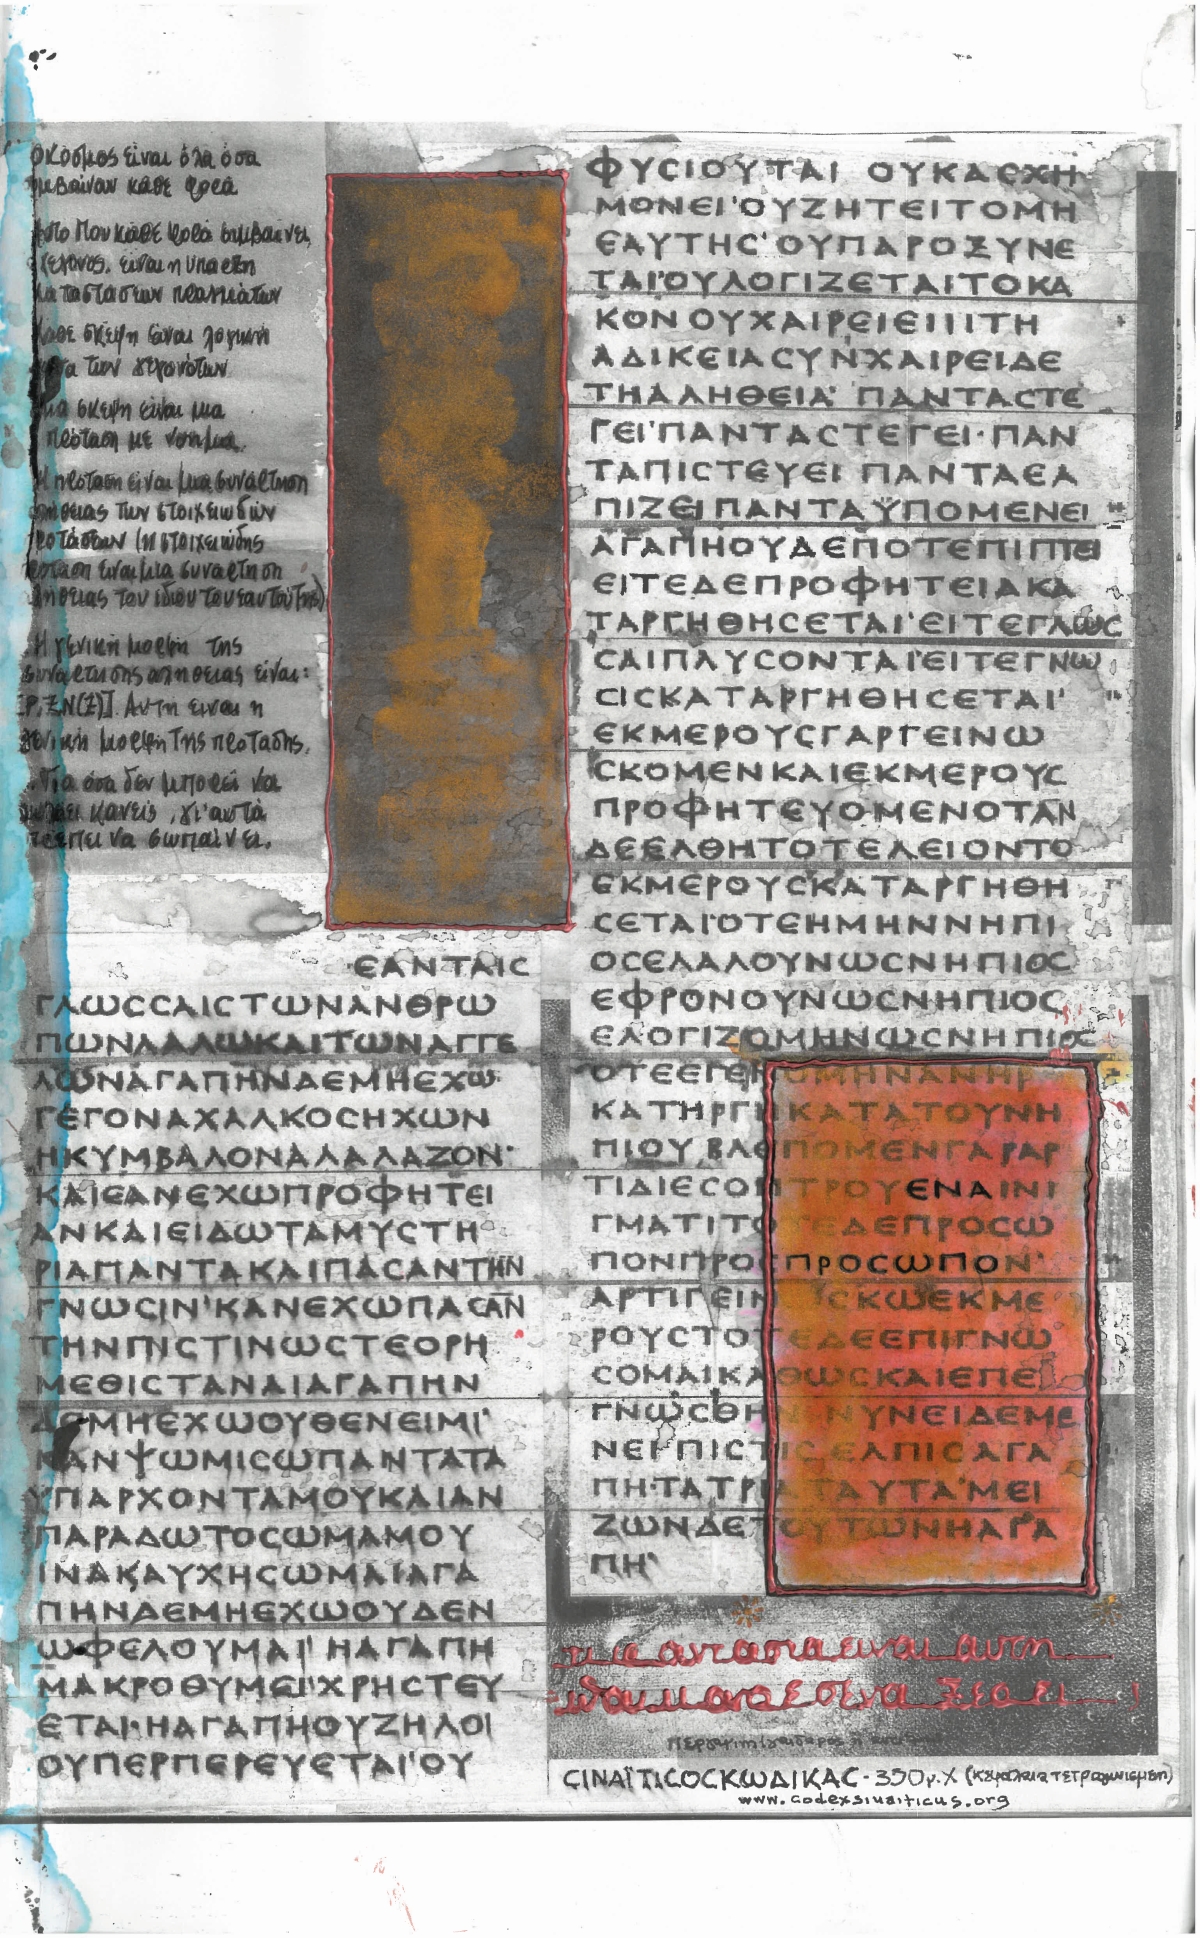 Ο κόσμος είναι όλα όσα
συμβαίνουν κάθε φορά
Αυτό που κάθε φορά συμβαίνει,
γεγονός, είναι η υπαρξη
καταστάσεων πραγμάτων
Κάθε σκέψη είναι λογική
των γεγονότων
μια σκέψη είναι μια
πρόταση με νόημα.
Η πρόταση είναι μια συνάρτηση
αλήθειας των στοιχειωδών
προτάσεων (η στοιχειώδης
πρόταση είναι μια συναρτηση
αλήθειας του ίδιου του εαυτού της)
Η γενική μορφή της
συνάρτησης αληθειας είναι:
[P, Ξ, N(Ξ)]. Αυτη ειναι η
γενική μορφη της πρότασης.
Για όσα δεν μπορεί να
μιλάει κανείς, γι' αυτά
πρέπει να σωπαίνει.
ΕΑΝΤΑΙC
ΓΛΩCCΑΙCΤΩΝΑΝΘΡΩ
ΠΩΝΛΑΛΩΚΑΙΤΩΝΑΓΓΕ
ΛΩΝΑΓΑΠΗΝΔΕΜΗΕΧΩ·
ΓΕΓΟΝΑΧΑΛΚΟCΗΧΩΝ
ΗΚΥΜΒΑΛΟΝΑΛΑΛΑΖΟΝ·
ΚΑΙΕΑΝΕΧΩΠΡΟΦΗΤΕΙ
ΑΝΚΑΙΕΙΔΩΤΑΜΥCΤΗ
ΡΙΑΠΑΝΤΑΚΑΙΠΑCΑΝΤΗΝ
ΓΝΩCΙΝ'ΚΑΝΕΧΩΠΑCΑΝ
ΤΗΝΠΙCΤΙΝΩCΤΕΟΡΗ
ΜΕΘΙCΤΑΝΑΙΑΓΑΠΗΝ
ΔΕΜΗΕΧΩΟΥΘΕΝΕΙΜΙ'
ΚΑΝΨΩΜΙCΩΠΑΝΤΑΤΑ
ΥΠΑΡΧΟΝΤΑΜΟΥΚΑΙΑΝ
ΠΑΡΑΔΩΤΟCΩΜΑΜΟΥ
ΙΝΑΚΑΥΧΗCΩΜΑΙΑΓΑ
ΠΗΝΔΕΜΗΕΧΩΟΥΔΕΝ
ΩΦΕΛΟΥΜΑΙ' ΗΑΓΑΠΗ
ΜΑΚΡΟΘΥΜΕΙ'ΧΡΗCΤΕΥ
ΕΤΑΙ·ΗΑΓΑΠΗΟΥΖΗΛΟΙ
ΟΥΠΕΡΠΕΡΕΥΕΤΑΙ'ΟΥ
ΦΥCΙΟΥΤΑΙ ΟΥΚΑCΧΗ
ΜΟΝΕΙ'ΟΥΖΗΤΕΙΤΟΜΗ
ΕΑΥΤΗC'ΟΥΠΑΡΟΞΥΝΕ
ΤΑΙ'ΟΥΛΟΓΙΖΕΤΑΙΤΟΚΑ
ΚΟΝ ΟΥΧΑΙΡΕΙΕΠΙΤΗ
ΑΔΙΚΕΙΑCΥΝΧΑΙΡΕΙΔΕ
ΤΗΑΛΗΘΕΙΑ· ΠΑΝΤΑCΤΕ
ΓΕΙ'ΠΑΝΤΑCΤΕΓΕΙ·ΠΑΝ
ΤΑΠΙCΤΕΥΕΙ ΠΑΝΤΑΕΛ
ΠΙΖΕΙΠΑΝΤΑΫΠΟΜΕΝΕΙ
ΑΓΑΠΗΟΥΔΕΠΟΤΕΠΙΠΤΕΙ
ΕΙΤΕΔΕΠΡΟΦΗΤΕΙΑΚΑ
ΤΑΡΓΗΘΗCΕΤΑΙ'ΕΙΤΕΓΛΩC
CΑΙΠΑΥCΟΝΤΑΙ'ΕΙΤΕΓΝΩ
CΙCΚΑΤΑΡΓΗΘΗCΕΤΑΙ'
ΕΚΜΕΡΟΥCΓΑΡΓΕΙΝΩ
CΚΟΜΕΝΚΑΙΕΚΜΕΡΟΥC
ΠΡΟΦΗΤΕΥΟΜΕΝΟΤΑΝ
ΔΕΕΛΘΗΤΟΤΕΛΕΙΟΝΤΟ
ΕΚΜΕΡΟΥCΚΑΤΑΡΓΗΘΗ
CΕΤΑΙ'ΟΤΕΗΜΗΝΝΗΠΙ
ΟCΕΛΑΛΟΥΝΩCΝΗΠΙΟC
ΕΦΡΟΝΟΥΝΩCΝΗΠΙΟC
ΕΛΟΓΙΖΟΜΗΝΩCΝΗΠΙΟC
ΟΤΕΕΓΕΝΟΜΗΝΑΝΗΡ
ΚΑΤΗΡΓΗΚΑΤΑΤΟΥΝΗ
ΠΙΟΥ ΒΛΕΠΟΜΕΝΓΑΡΑΡ
ΤΙΔΙΕCΟΠΤΡΟΥΕΝΑΙΝΙ
ΓΜΑΤΙΤΟΤΕΔΕΠΡΟCΩ
ΠΟΝΠΡΟCΠΡΟCΩΠΟΝ·
ΑΡΤΙΓΕΙΝΩCΚΩΕΚΜΕ
ΡΟΥCΤΟΤΕΔΕΕΠΙΓΝΩ
CΟΜΑΙΚΑΘΩCΚΑΙΕΠΕ
ΓΝΩCΘΗΝ ΝΥΝΕΙΔΕΜΕ
ΝΕΙ'ΠΙCΤΙC ΕΛΠΙCΑΓΑ
ΠΗ·ΤΑΤΡΙΑΤΑΥΤΑ'ΜΕΙ
ΖΩΝΔΕΤΟΥΤΩΝΗΑΓΑ
ΠΗ'
ειναι αυτη
CΙΝΑΪΤΙCΟCΚΩΔΙΚΑC - 350μ.Χ (Κεφάλαια τετραγωνισμένη)
www.codexsinaiticus.org